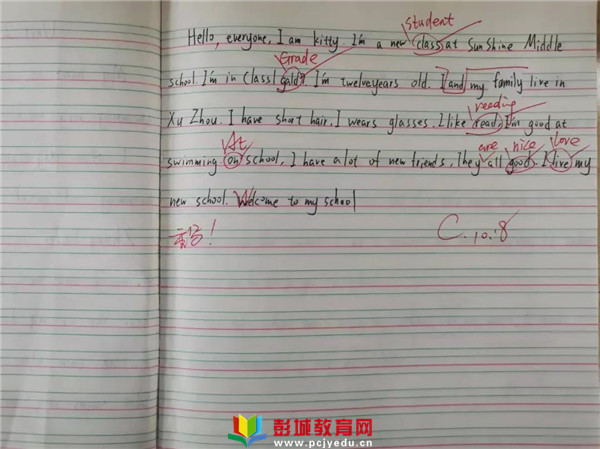 student
Hello, everyone, I am kitty. I'm a new class at Sun Shine Middle
Grade
school. I'm in Class1 Gald7. I'm twelveyears old. I and my family live in
reading
Xu Zhou. I have short hair. I wears glasses. I like read. I'm good at
At are nice love
swimming on school. I have a lot of new friends. They all good. I live my
new school. Welcome to my school
C. 10.8
彭城教育网
www.pcjyedu.cn